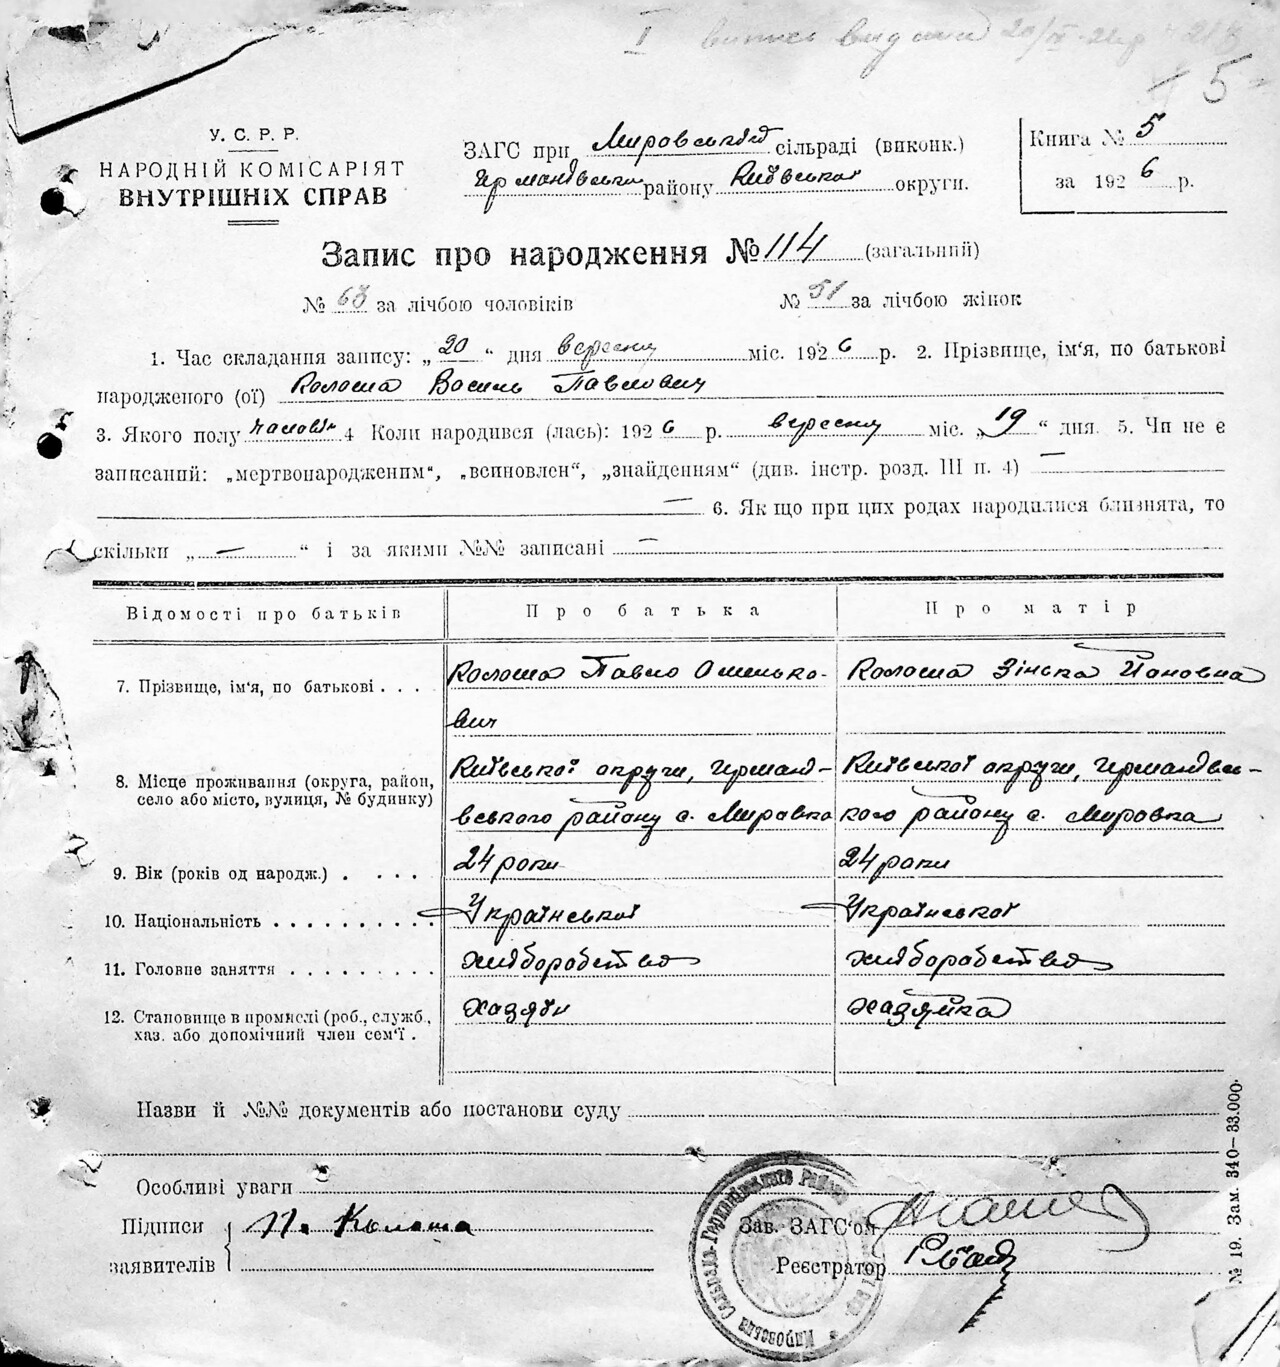 I випись видана 20/IX-26р
5
У. С. Р. Р.
НАРОДНІЙ КОМІСАРІЯТ
ВНУТРІШНІХ СПРАВ
ЗАГС при Мировській сільраді (виконк.)
Германівська району Київської округи.
Книга № 5
за 1926 р.
Запис про народження № 114 (загальний)
№ 63 за лічбою чоловіків № 51 за лічбою жінок
1. Час складання запису: „20“ дня вересня міс. 1926 р. 2. Прізвище, ім'я, по батькові
народженого (ої) Колоша Василь Павлович
3. Якого полу чоловік 4 Коли народився (лась): 1926 р. вересня міс. „19“ дня. 5. Чи не є
записаний: „мертвонародженим“, „всиновлен“, „знайденням“ (див. інстр. розд. III п. 4) —
— 6. Як що при цих родах народилися близнята, то
скільки „—“ і за якими №№ записані —
Відомості про батьків Про батька Про матір
7. Прізвище, ім'я, по батькові . . . Колоша Павло Омелько- Колоша Зінька Йоновна
вич
8. Місце проживання (округа, район, Київської округи, Германів- Київської округи, Германівсь-
село або місто, вулиця, № будинку) вського району с. Мировка кого району с. Мировка
9. Вік (років од народж.) . . . . 24 роки 24 роки
10. Національність . . . . . . . . . . Української Української
11. Головне заняття . . . . . . . . . хліборобство хліборобство
12. Становище в промислі (роб., служб., хазяїн хазяйка
хаз. або допомічний член сем'ї .
Назви й №№ документів або постанови суду
Особливі уваги
Підписи П. Колоша Зав. ЗАГС'ом
заявителів Реєстратор
№ 19. Зам. 340—33.000.